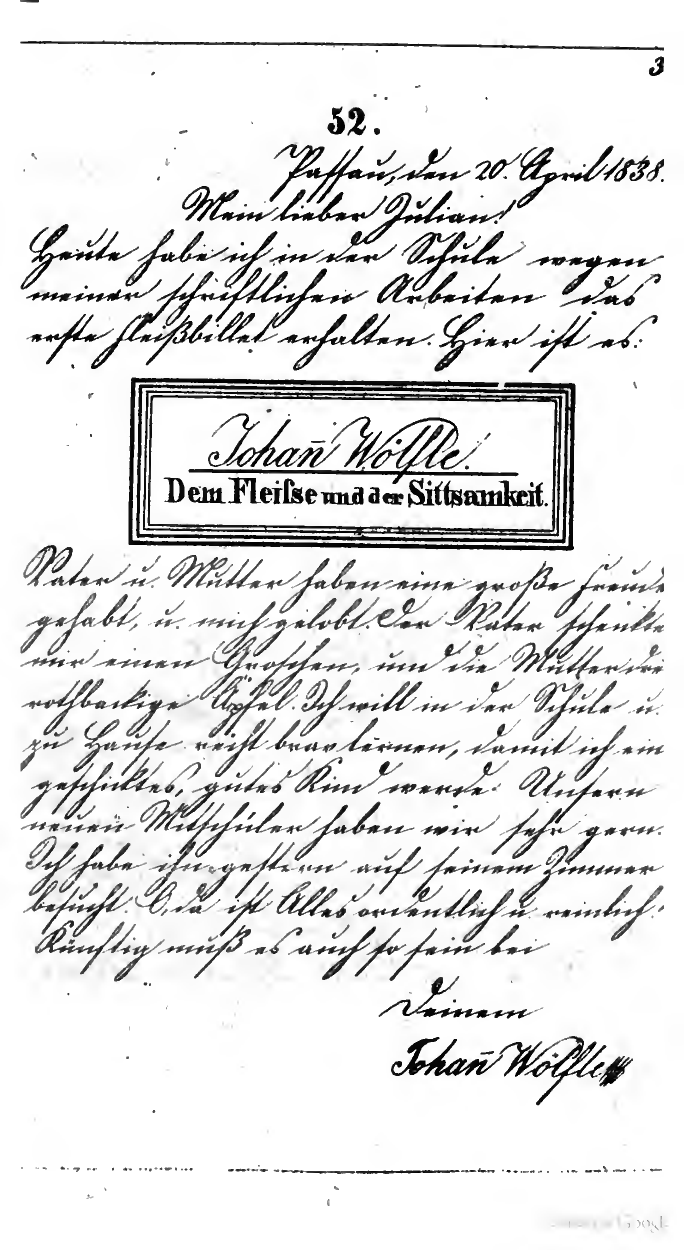 3
52.
Passau, den 20. April 1838.
Mein lieber Julian!
Heute habe ich in der Schule wegen
meiner schriftlichen Arbeiten das
erste Fleißbillet erhalten. Hier ist es:
Johan̄ Wölfle.
Dem Fleiſse und der Sittsamkeit.
Vater u. Mutter haben eine große Freude
gehabt, u. mich gelobt. Der Vater schenkte
mir einen Groschen, und die Mutter drei
rothbackige Äpfel. Ich will in der Schule u.
zu Hause recht brav lernen, damit ich ein
geschicktes, gutes Kind werde. Unsern
neuen Mitschüler haben wir sehr gern.
Ich habe ihn gestern auf seinem Zimmer
besucht. O, da ist Alles ordentlich u. reinlich!
Künftig muß es auch so sein bei
Deinem
Johan̄ Wölfle